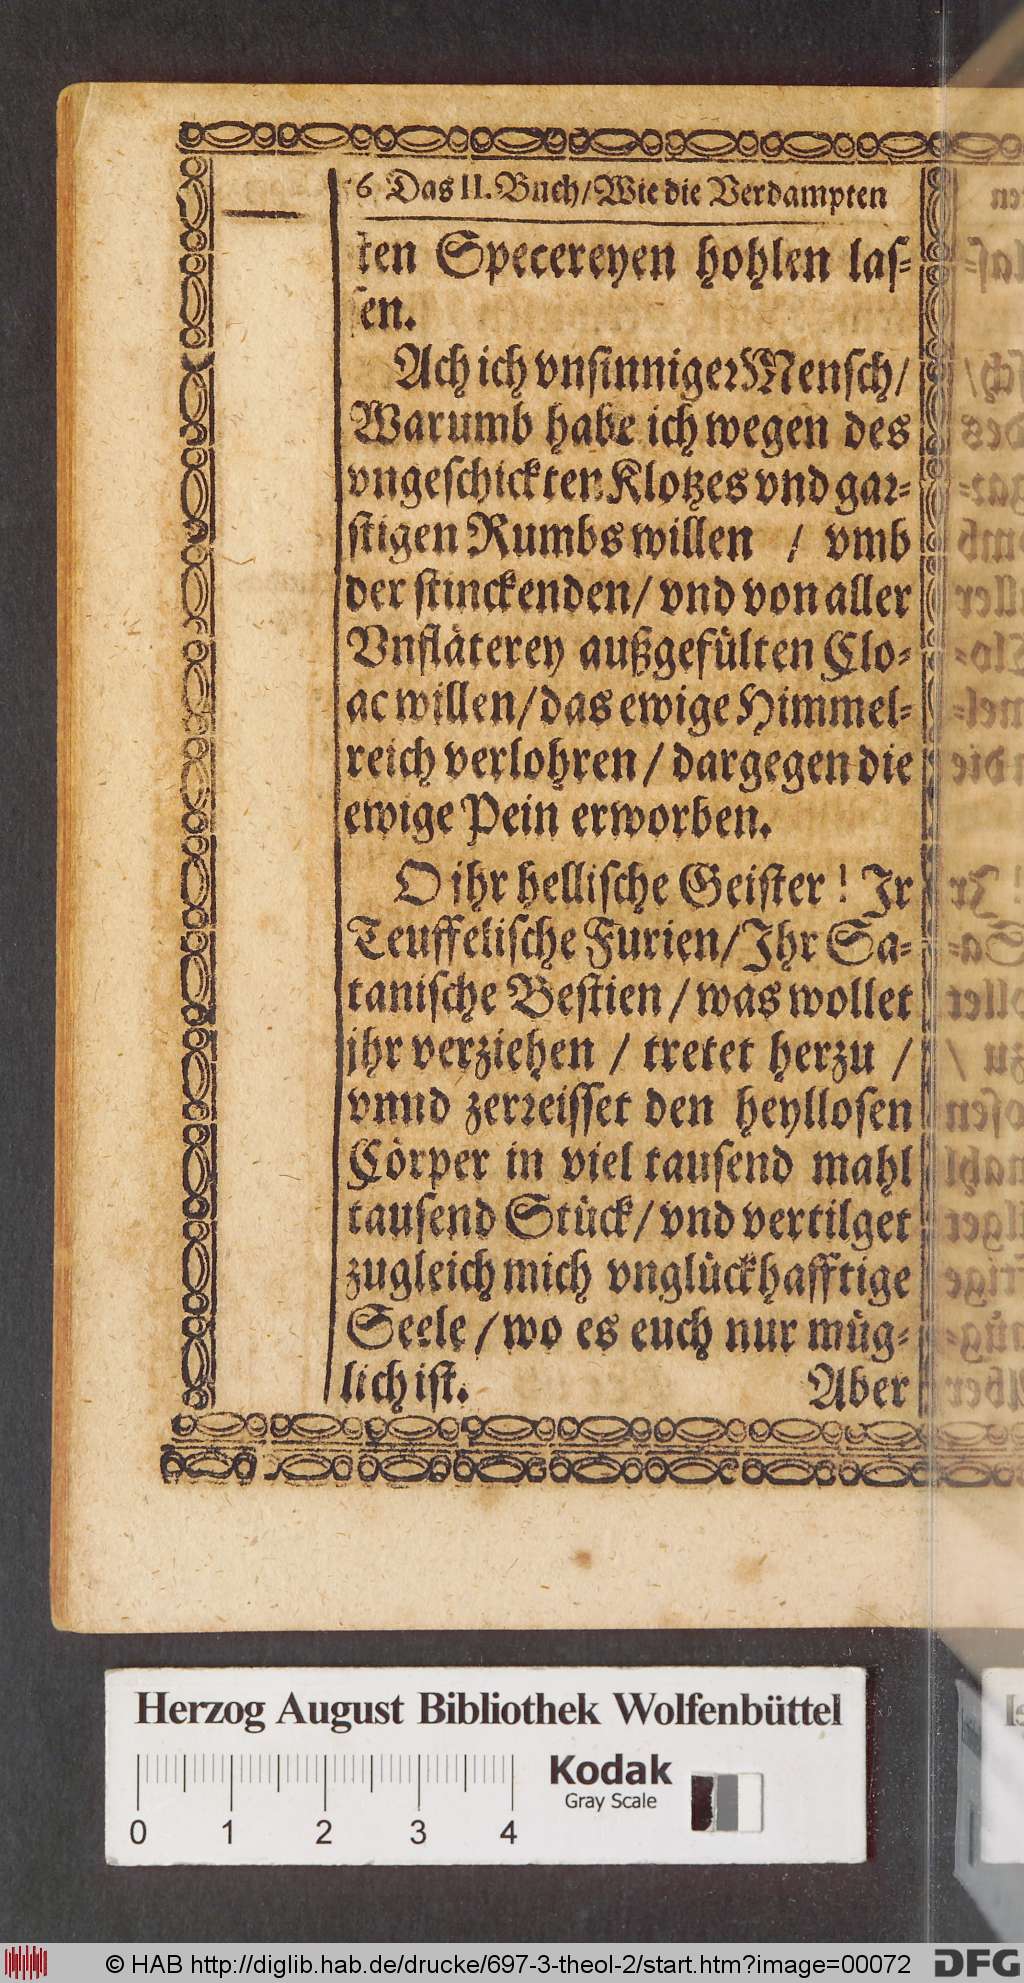 6 Das II. Buch/ Wie die Verdampten
ten Specereyen hohlen las-
sen.
Ach ich vnsinniger Mensch/
Warumb habe ich wegen des
vngeschickten Klotzes vnd gar-
stigen Rumbs willen / vmb
der stinckenden/ vnd von aller
Vnfläterey außgefülten Clo-
ac willen/ das ewige Himmel-
reich verlohren / dargegen die
ewige Pein erworben.
O ihr hellische Geister! Ir
Teuffelische Furien/ Ihr Sa-
tanische Bestien / was wollet
jhr verziehen / tretet herzu /
vnnd zerreisset den heyllosen
Cörper in viel tausend mahl
tausend Stück/ vnd vertilget
zugleich mich vnglückhafftige
Seele / wo es euch nur müg-
lich ist.
Aber
Herzog August Bibliothek Wolfenbüttel
Kodak
Gray Scale
0 1 2 3 4
© HAB http://diglib.hab.de/drucke/697-3-theol-2/start.htm?image=00072
DFG